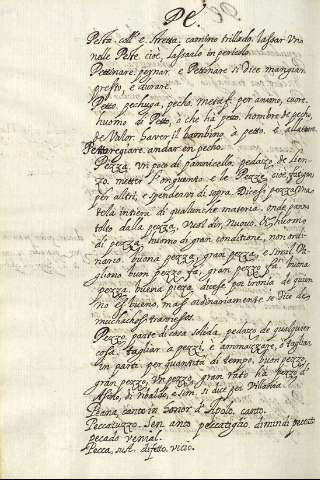 PE.
Pesta. coll' e stretta, camino trillado, lassar Uno
nelle Peste. cioè, lassarlo in pericolo.
Pettinare. peynar. e Pettinare si dice mangiar
presto, e divorare.
Petto. pechuga, pecho. metaf. per animo, cuore
huomo di Petto, o che hà petto, hombre de pecho,
de valor. haver il bambino à petto. e allattare
Pettoreggiare. andar en pecho.
Pezza. Un poco di pannicello. pedazzo de lien-
zo. metter il unguento. e le Pezze, cioè,
per altri, e spendervi di sopra. Dicesi pezza
tela intiera di qualunche materia, onde panno
tolto dalla pezza, vuol dir, nuovo. & huomo
di pezza, huomo di gran conditione, non ordi-
nario. buona pezza, gran pezza, e simil. Vo-
gliono buon pezzo fà, gran pezzo fà. buona
pezza. buena pieza, dicesi per ironia de quien
no es bueno, mas ordinariamente se dice de
muchachos traviesos.
Pezzo, parte di cosa solida, pedazo de qualquier
cosa. tagliar a pezzi, è ammazzare, o tagliar
in parti. per quantità di tempo, buon pezzo,
gran pezzo, Un pezzo, gran rato hà. pezzo d'
Asino, di Ribaldo, e sim. si dice per Villania.
Peana, canto in honor d'Apolo, canto.
Peccatuzzo. Sen. anco peccatiglio. dimin. di peccato
pecado venial.
Pecca, sust. difetto, vicio.